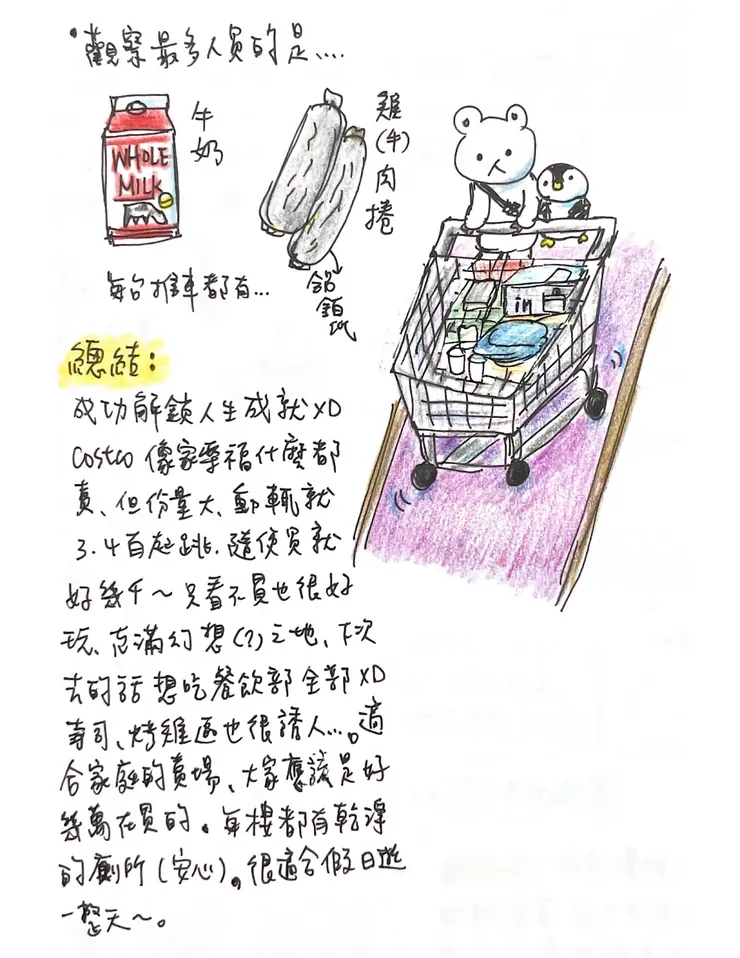 •觀察最多人買的是....
牛奶
WHOLE
MILK
雞(牛)肉捲
鋁鉑紙
每台推車都有...
in
總結:
成功解鎖人生成就XD
Costco 像家樂福什麼都
賣、但份量大、動輒就
3.4百起跳.隨便買就
好幾千~只看不買也很好
玩、充滿幻想(?)之地、下次
去的話想吃餐飲部全部XD
壽司、烤雞區也很誘人...。適
合家庭的賣場、大家應該是好
幾萬在買的。每樓都有乾淨
的廁所(安心)。很適合假日逛
一整天~。